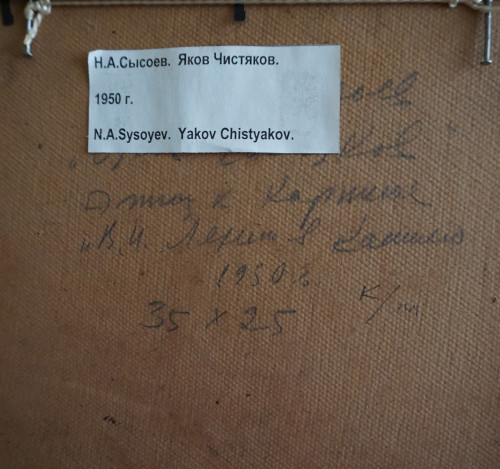 Н.А.Сысоев. Яков Чистяков.
1950 г.
N.A.Sysoyev. Yakov Chistyakov.
Этюд к картине
„В.И. Ленин в Кашино
1950 г.
к/м
35 x 25